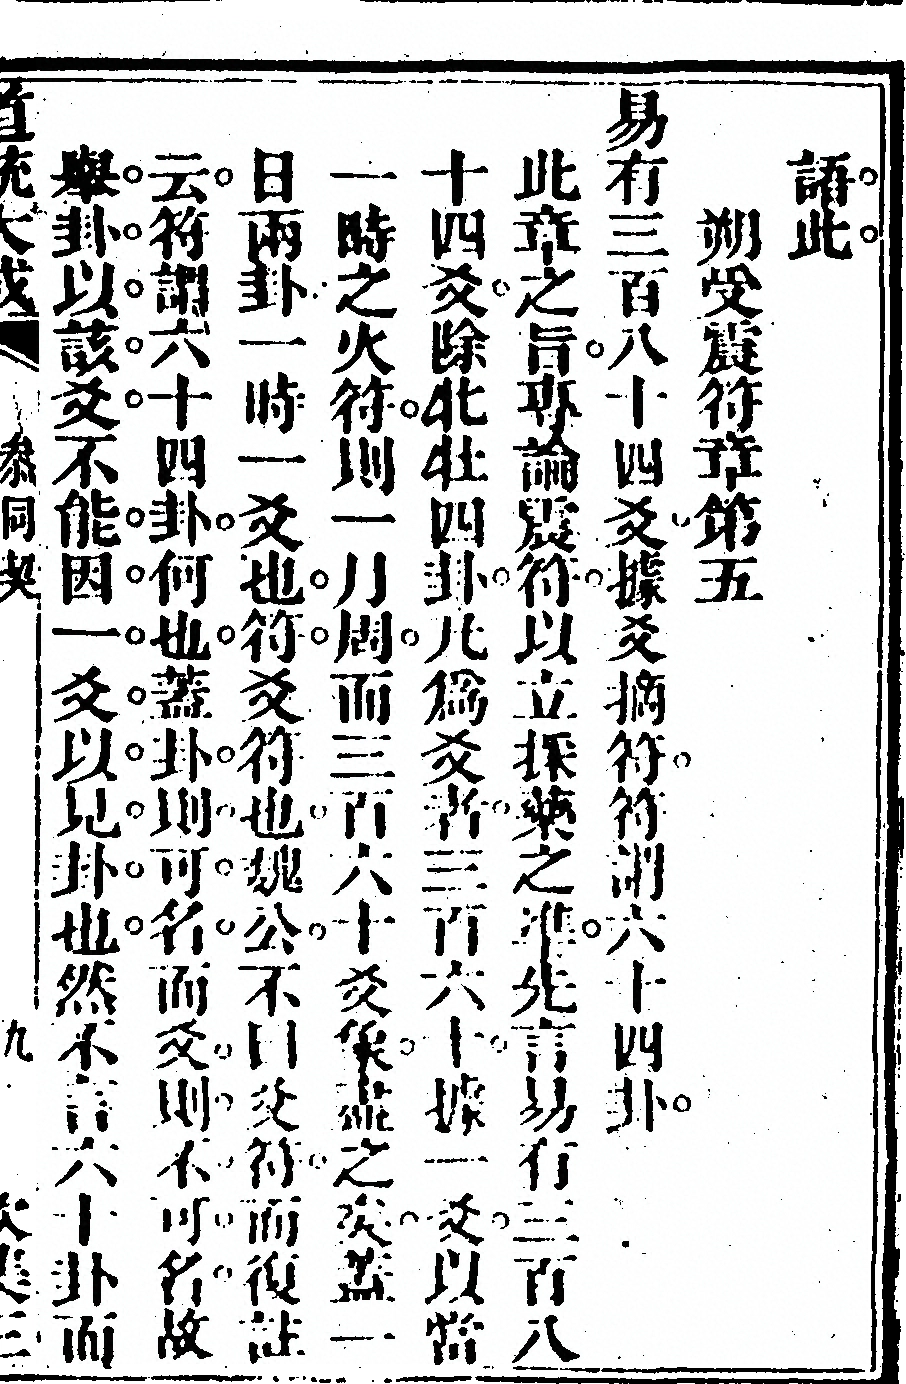 語此
朔受震符章第五
易有三百八十四爻據爻摘符符謂六十四卦
此章之旨專論震符以立採藥之準先言易有三百八
十四爻除牝牡四卦凡為爻者三百六十據一爻以當
一時之火符則一月周而三百六十爻象盡之矣蓋一
日兩卦一時一爻也符爻符也魏公不曰爻符而復註
云符謂六十四卦何也蓋卦則可名而爻則不可名故
舉卦以該爻不能因一爻以見卦也然不言六十卦而
道統大成 參同契 九